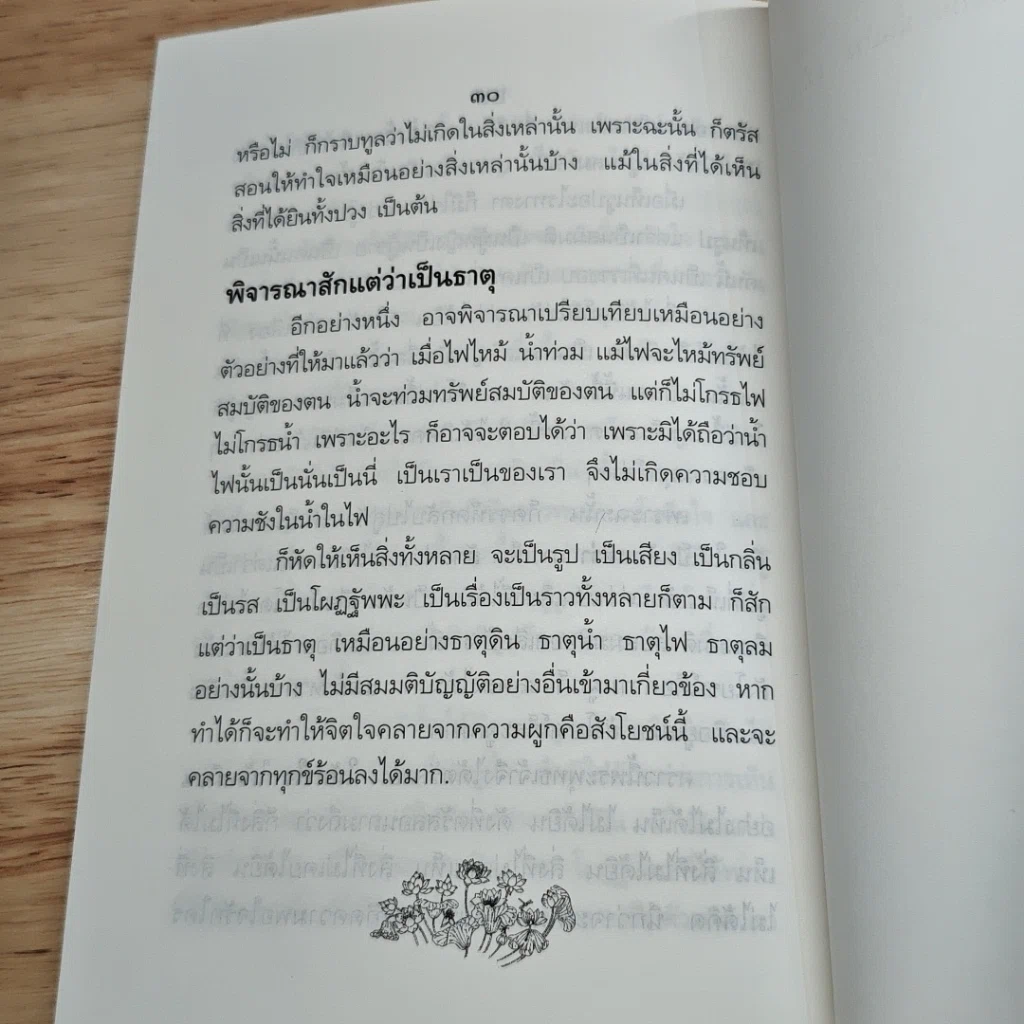 ๓๐
หรือไม่ ก็กราบทูลว่าไม่เกิดในสิ่งเหล่านั้น เพราะฉะนั้น ก็ตรัส
สอนให้ทำใจเหมือนอย่างสิ่งเหล่านั้นบ้าง แม้ในสิ่งที่ได้เห็น
สิ่งที่ได้ยินทั้งปวง เป็นต้น
พิจารณาสักแต่ว่าเป็นธาตุ
อีกอย่างหนึ่ง อาจพิจารณาเปรียบเทียบเหมือนอย่าง
ตัวอย่างที่ให้มาแล้วว่า เมื่อไฟไหม้ น้ำท่วม แม้ไฟจะไหม้ทรัพย์
สมบัติของตน น้ำจะท่วมทรัพย์สมบัติของตน แต่ก็ไม่โกรธไฟ
ไม่โกรธน้ำ เพราะอะไร ก็อาจจะตอบได้ว่า เพราะมิได้ถือว่าน้ำ
ไฟนั้นเป็นนั่นเป็นนี่ เป็นเราเป็นของเรา จึงไม่เกิดความชอบ
ความชังในน้ำในไฟ
ก็หัดให้เห็นสิ่งทั้งหลาย จะเป็นรูป เป็นเสียง เป็นกลิ่น
เป็นรส เป็นโผฏฐัพพะ เป็นเรื่องเป็นราวทั้งหลายก็ตาม ก็สัก
แต่ว่าเป็นธาตุ เหมือนอย่างธาตุดิน ธาตุน้ำ ธาตุไฟ ธาตุลม
อย่างนั้นบ้าง ไม่มีสมมติบัญญัติอย่างอื่นเข้ามาเกี่ยวข้อง หาก
ทำได้ก็จะทำให้จิตใจคลายจากความผูกคือสังโยชน์นี้ และจะ
คลายจากทุกข์ร้อนลงได้มาก.